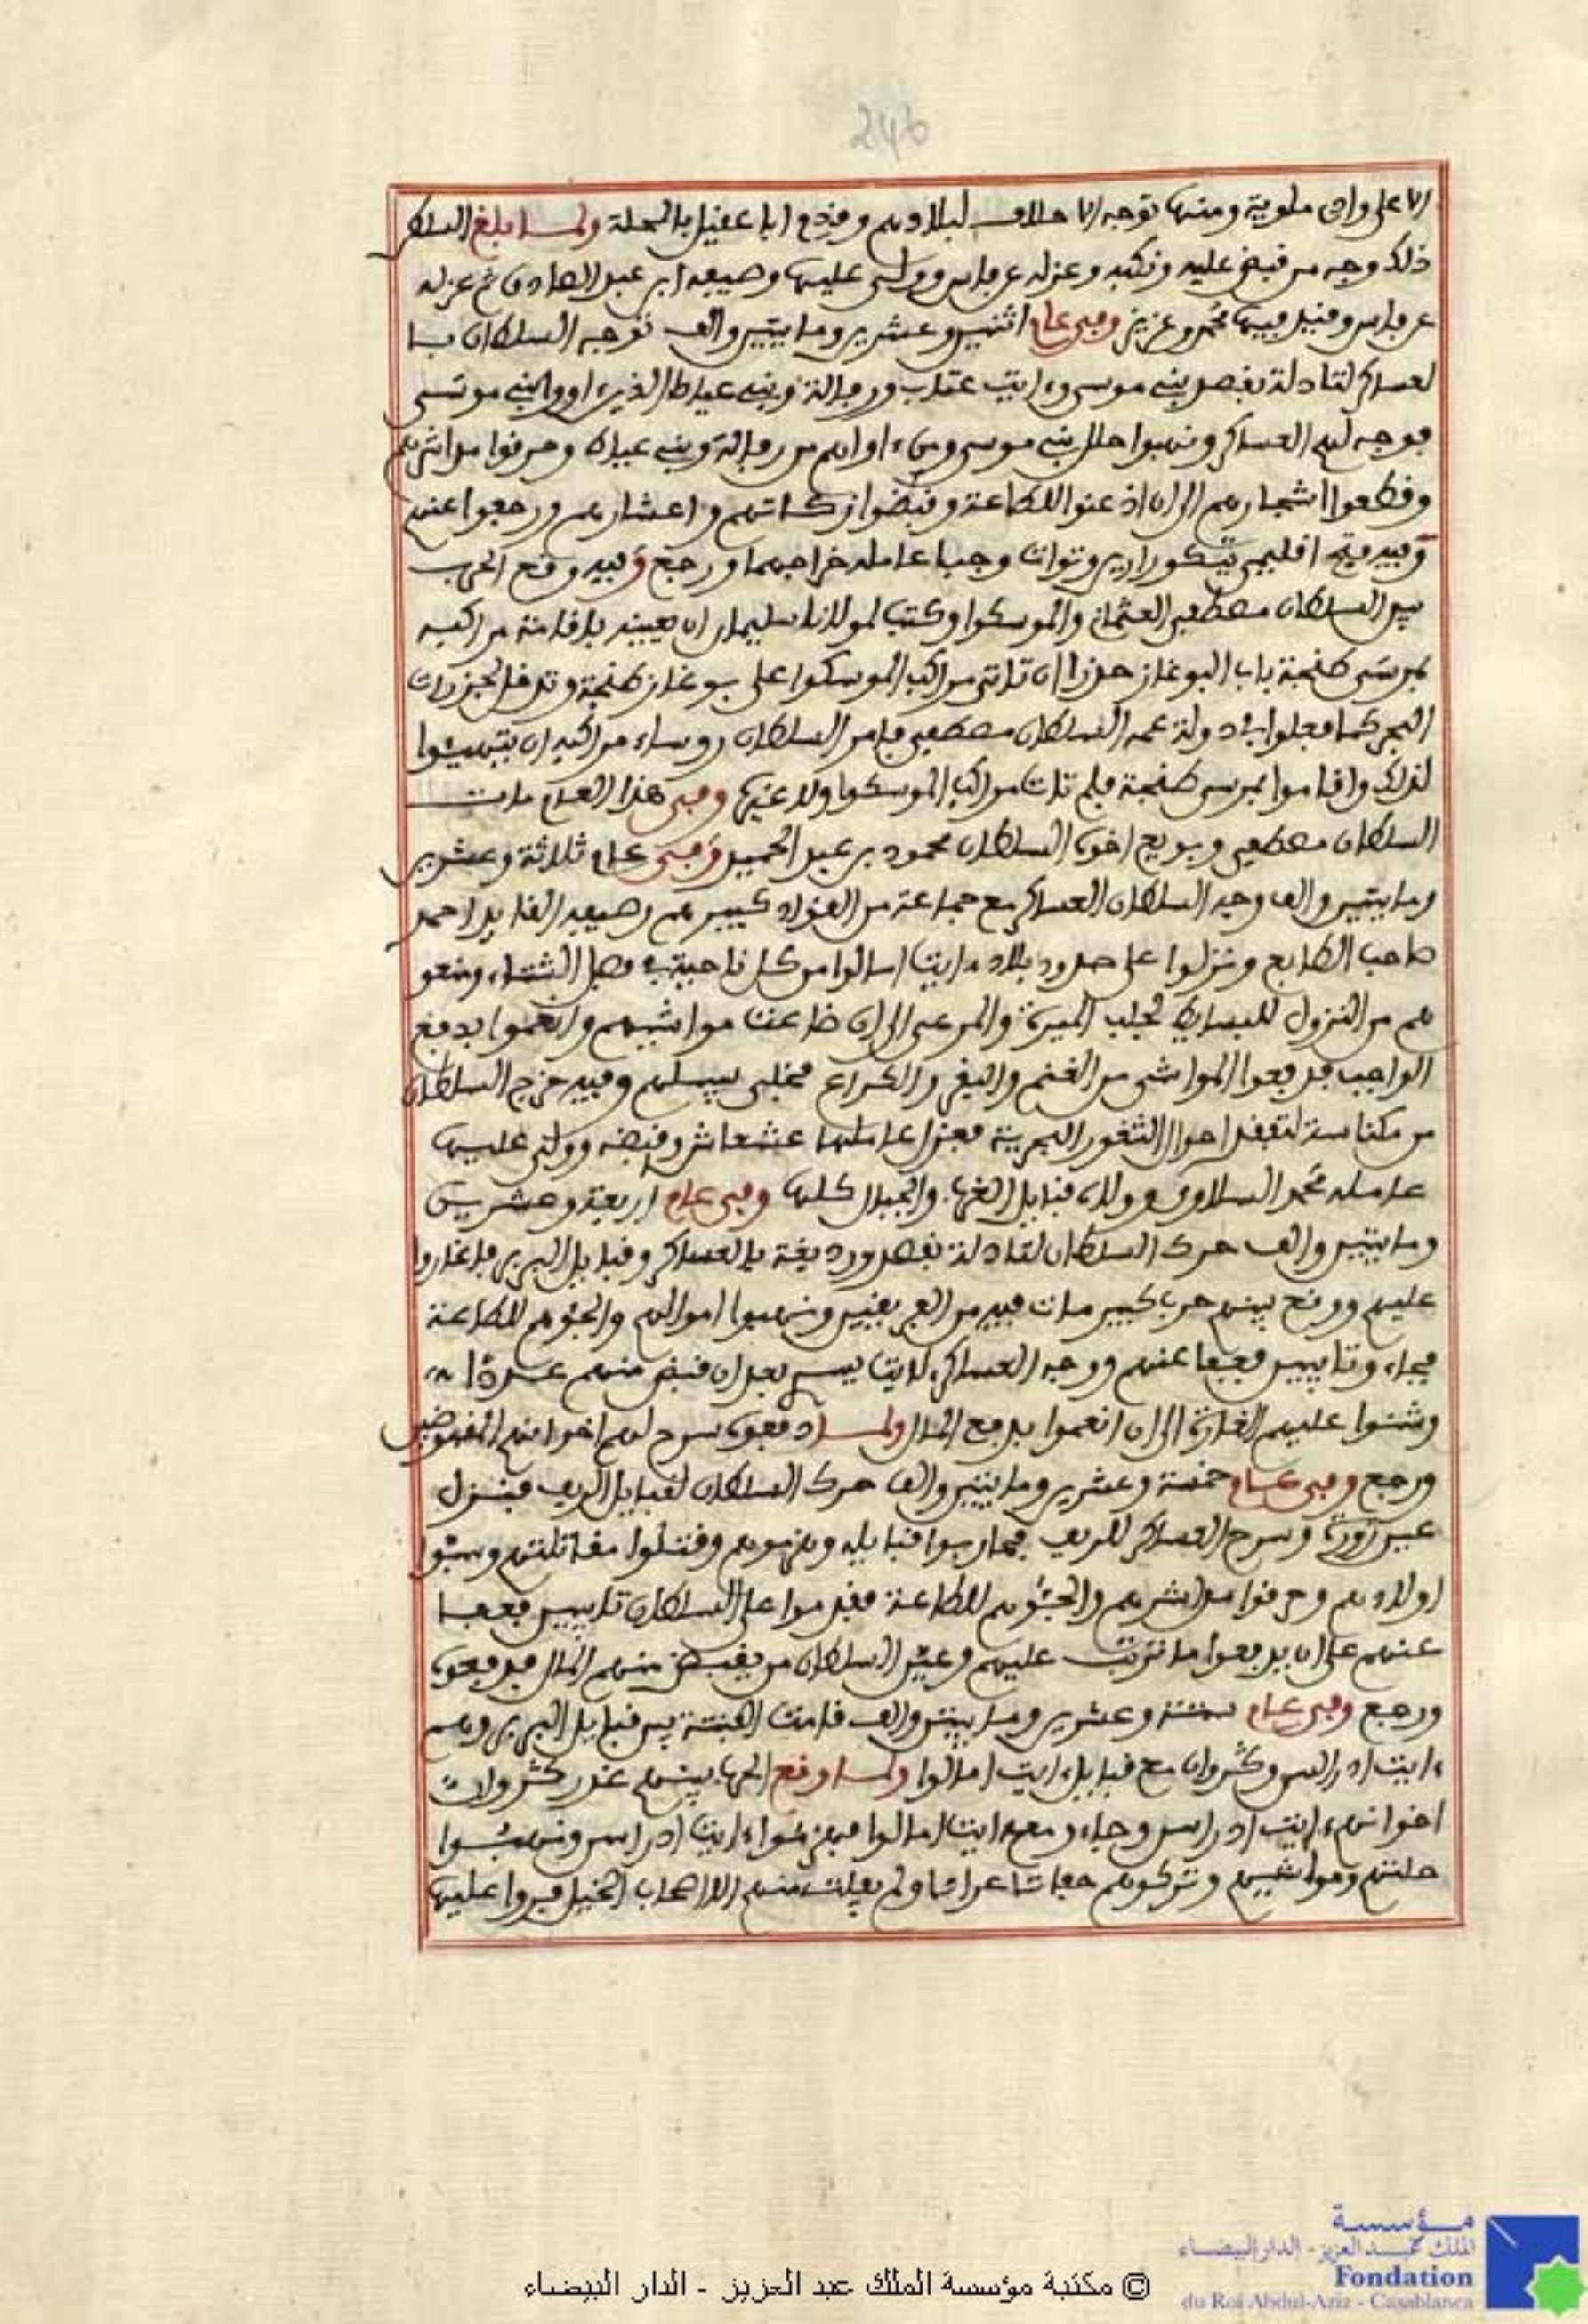 246
الاعلى وادي ملوية ومنها توجه الاحلاف لبلادهم وقدم ابا عقيل بالمحلة ولما بلغ السلطان
ذلك وجه من قبض عليه ونكبه وعزله عن فاس وولى عليها وصيفه ابن عبد الصادق ثم عزله
عن فاس وقبل فيها محمد وعزيز وفي عام اثنين وعشرين ومايتين والف توجه السلطان با
لعساكر لتادلة بقصد بني موسى وايت عتاب ورفالة وبني عياط الذين ءاووا بني موسى
فوجه لهم العساكر ونهبوا حلل بني موسى ومن ءاواهم من رفالة وبني عياط وحرقوا مداشرهم
وقطعوا اشجارهم الى ان اذعنوا للطاعة وقبضوا زكاتهم واعشارهم ورجعوا عنهم
وفيه فتح اقليمي تيكورارين وتوات وجبا عامله خراجهما ورجع وفيه وقع الحرب
بين السلطان مصطفى العثماني والموسكوا وكتب لمولانا سليمان ان يعينه باقامة مراكبه
بمرسى طنجة باب البوغاز حذرا ان تاتي مراكب الموسكوا على بوغاز طنجة وتدخل لجزرات
البحر كما فعلوا في دولة عمه السلطان مصطفى فامر السلطان روساء مراكبه ان يتهيئوا
لذلك واقاموا بمرسى طنجة فلم تات مراكب الموسكوا ولا غيرها وفي هذا العام مات
السلطان مصطفى وبويع اخوه السلطان محمود بن عبد الحميد وفي عام ثلاثة وعشرين
ومايتين والف وجه السلطان العساكر مع جماعة من القواد كبيرهم وصيفه القايد احمد
صاحب الطابع ونزلوا على حدود بلاد ءايت امالوا من كل ناحية في فصل الشتاء ومنعو
هم من النزول للبسايط لجلب الميرة والمرعى الى ان ضاعت مواشيهم وانعموا بدفع
الواجب فدفعوا المواشي من الغنم والبقر والكراع فخلى سبيلهم وفيه خرج السلطان
من مكناسة لتفقد احوال الثغور البحرية فعزل عاملها عشعاش وقبضه وولى عليها
عامله محمد السلاوي وولاه قبايل الغرب والجبال كلها وفي عام اربعة وعشرين
ومايتين والف حرك السلطان لتادلة بقصد ورديغة بالعساكر وقبايل البربر فاغاروا
عليهم ووقع بينهم حرب كبير مات فيه من الفريقين ونهبوا اموالهم والجئوهم للطاعة
فجاءوا تايبين فعفا عنهم ووجه العساكر لايت يسري بعد ان قبض منهم عددا
وشنوا عليهم الغارة الى ان انعموا بدفع المال ولما دفعوه سرح لهم اخوانهم المقبوضين
ورجع وفي عام خمسة وعشرين ومايتين والف حرك السلطان لقبايل الريف فنزل
عين زورة وسرح العساكر للريف فحاربوا قبايله وهزموهم وقتلوا مقاتلتهم وسبوا
اولادهم وحرقوا مداشرهم والجئوهم للطاعة فقدموا على السلطان تايبين فعفا
عنهم على ان يدفعوا ما ترتب عليهم وعين السلطان من يقبض منهم المال فدفعوه
ورجع وفي عام ستة وعشرين ومايتين والف قامت الفتنة بين قبايل البربر وهم
ءايت ادراسن وكروان مع قبايل ءايت امالوا ولما وقع الحرب بينهم غدر كروان
اخوانهم ءايت ادراسن وجاءوا معه ايت امالوا فهزموا ءايت ادراسن ونهبوا
حلتهم ومواشيهم وتركوهم حفاتا عراتا ولم يفلت منهم الا اصحاب الخيل فروا عليها
© مكتبة مؤسسة الملك عبد العزيز - الدار البيضاء
مؤسسة
الملك عبد العزيز - الدار البيضاء
Fondation
du Roi Abdul-Aziz - Casablanca